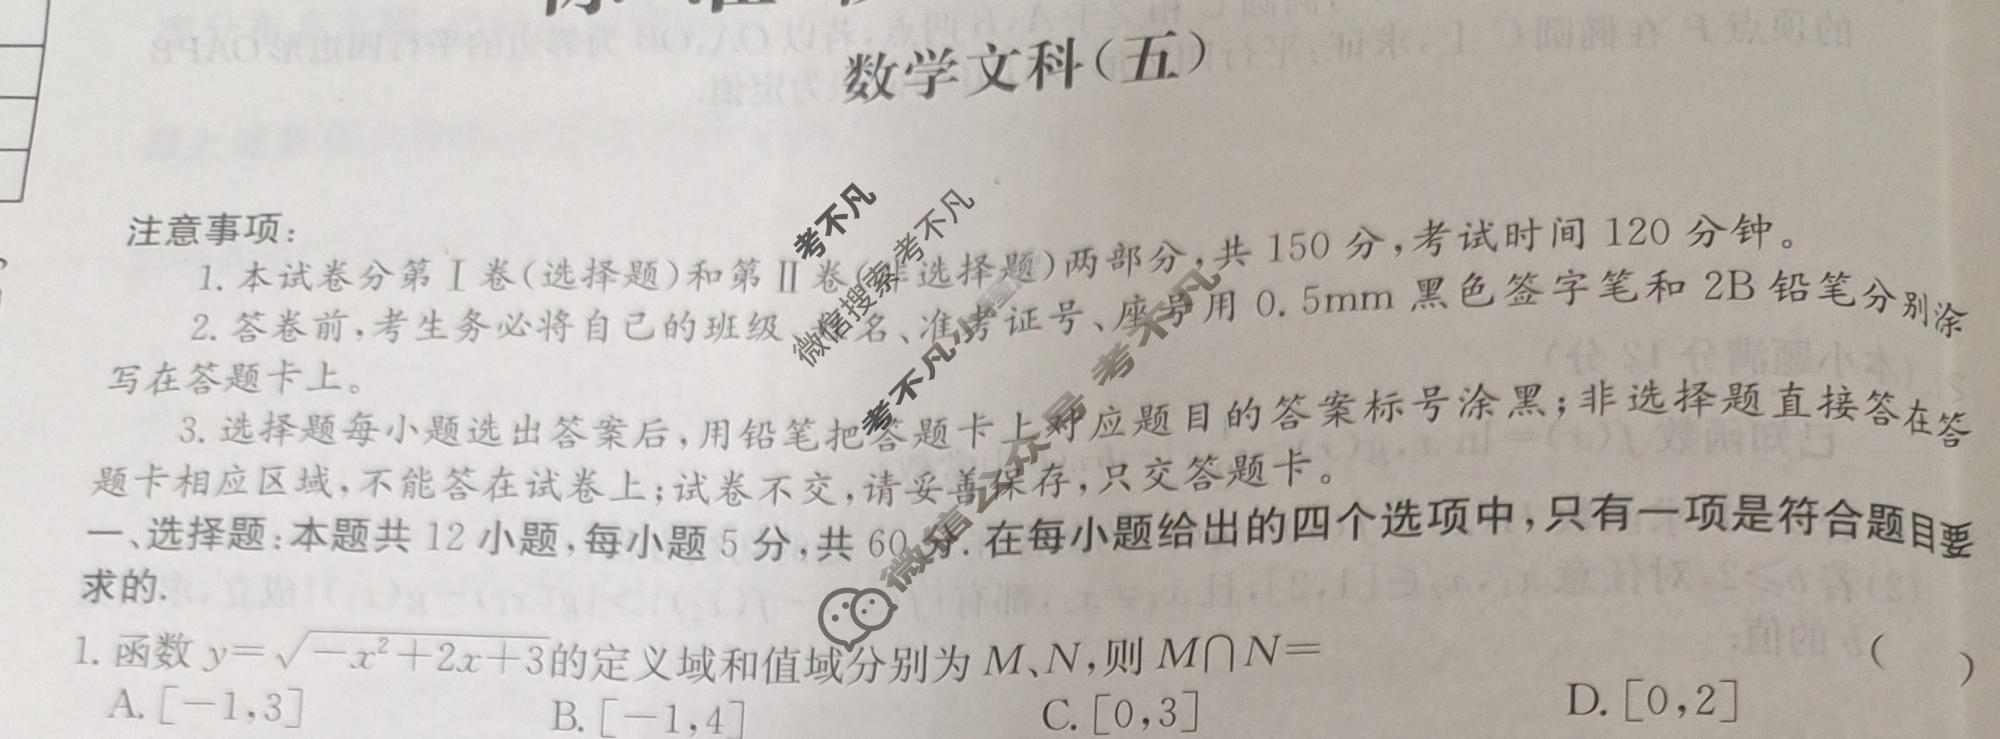 数学文科(五)
注意事项:
1. 本试卷分第Ⅰ卷(选择题)和第Ⅱ卷(非选择题)两部分,共 150 分,考试时间 120 分钟。
2. 答卷前,考生务必将自己的班级、名、准考证号、座号用 0.5mm 黑色签字笔和 2B 铅笔分别涂
写在答题卡上。
3. 选择题每小题选出答案后,用铅笔把答题卡上对应题目的答案标号涂黑;非选择题直接答在答
题卡相应区域,不能答在试卷上;试卷不交,请妥善保存,只交答题卡。
一、选择题:本题共 12 小题,每小题 5 分,共 60 分. 在每小题给出的四个选项中,只有一项是符合题目要
求的.
1. 函数 y=√(-x²+2x+3)的定义域和值域分别为 M、N,则 M∩N= ( )
A. [-1,3] B. [-1,4] C. [0,3] D. [0,2]
考不凡
微信搜索考不凡
考不凡小程序
微信公众号 考不凡